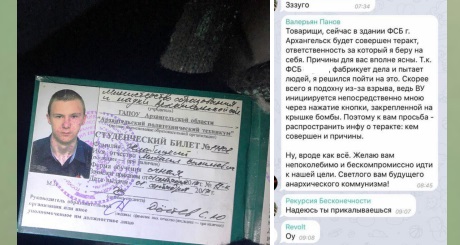 Министерство образования
и науки Архангельской
ГАПОУ Архангельской области
"Архангельский политехнический техникум"
СТУДЕНЧЕСКИЙ БИЛЕТ №
Зззуго
07:34
Валерьян Панов
Товарищи, сейчас в здании ФСБ г.
Архангельск будет совершен теракт,
ответственность за который я беру на
себя. Причины для вас вполне ясны. Т.к.
ФСБ , фабрикует дела и пытает
людей, я решился пойти на это. Скорее
всего я подохну из-за взрыва, ведь ВУ
инициируется непосредственно мною
через нажатие кнопки, закрепленной на
крышке бомбы. Поэтому к вам просьба -
распространить инфу о теракте: кем
совершен и причины.
Ну, вроде как всё. Желаю вам
непоколебимо и бескомпромиссно идти
к нашей цели. Светлого вам будущего
анархического коммунизма!
08:45
Рекурсия Бесконечности
Надеюсь ты прикалываешься
09:07
Revolt
Оу 09:08